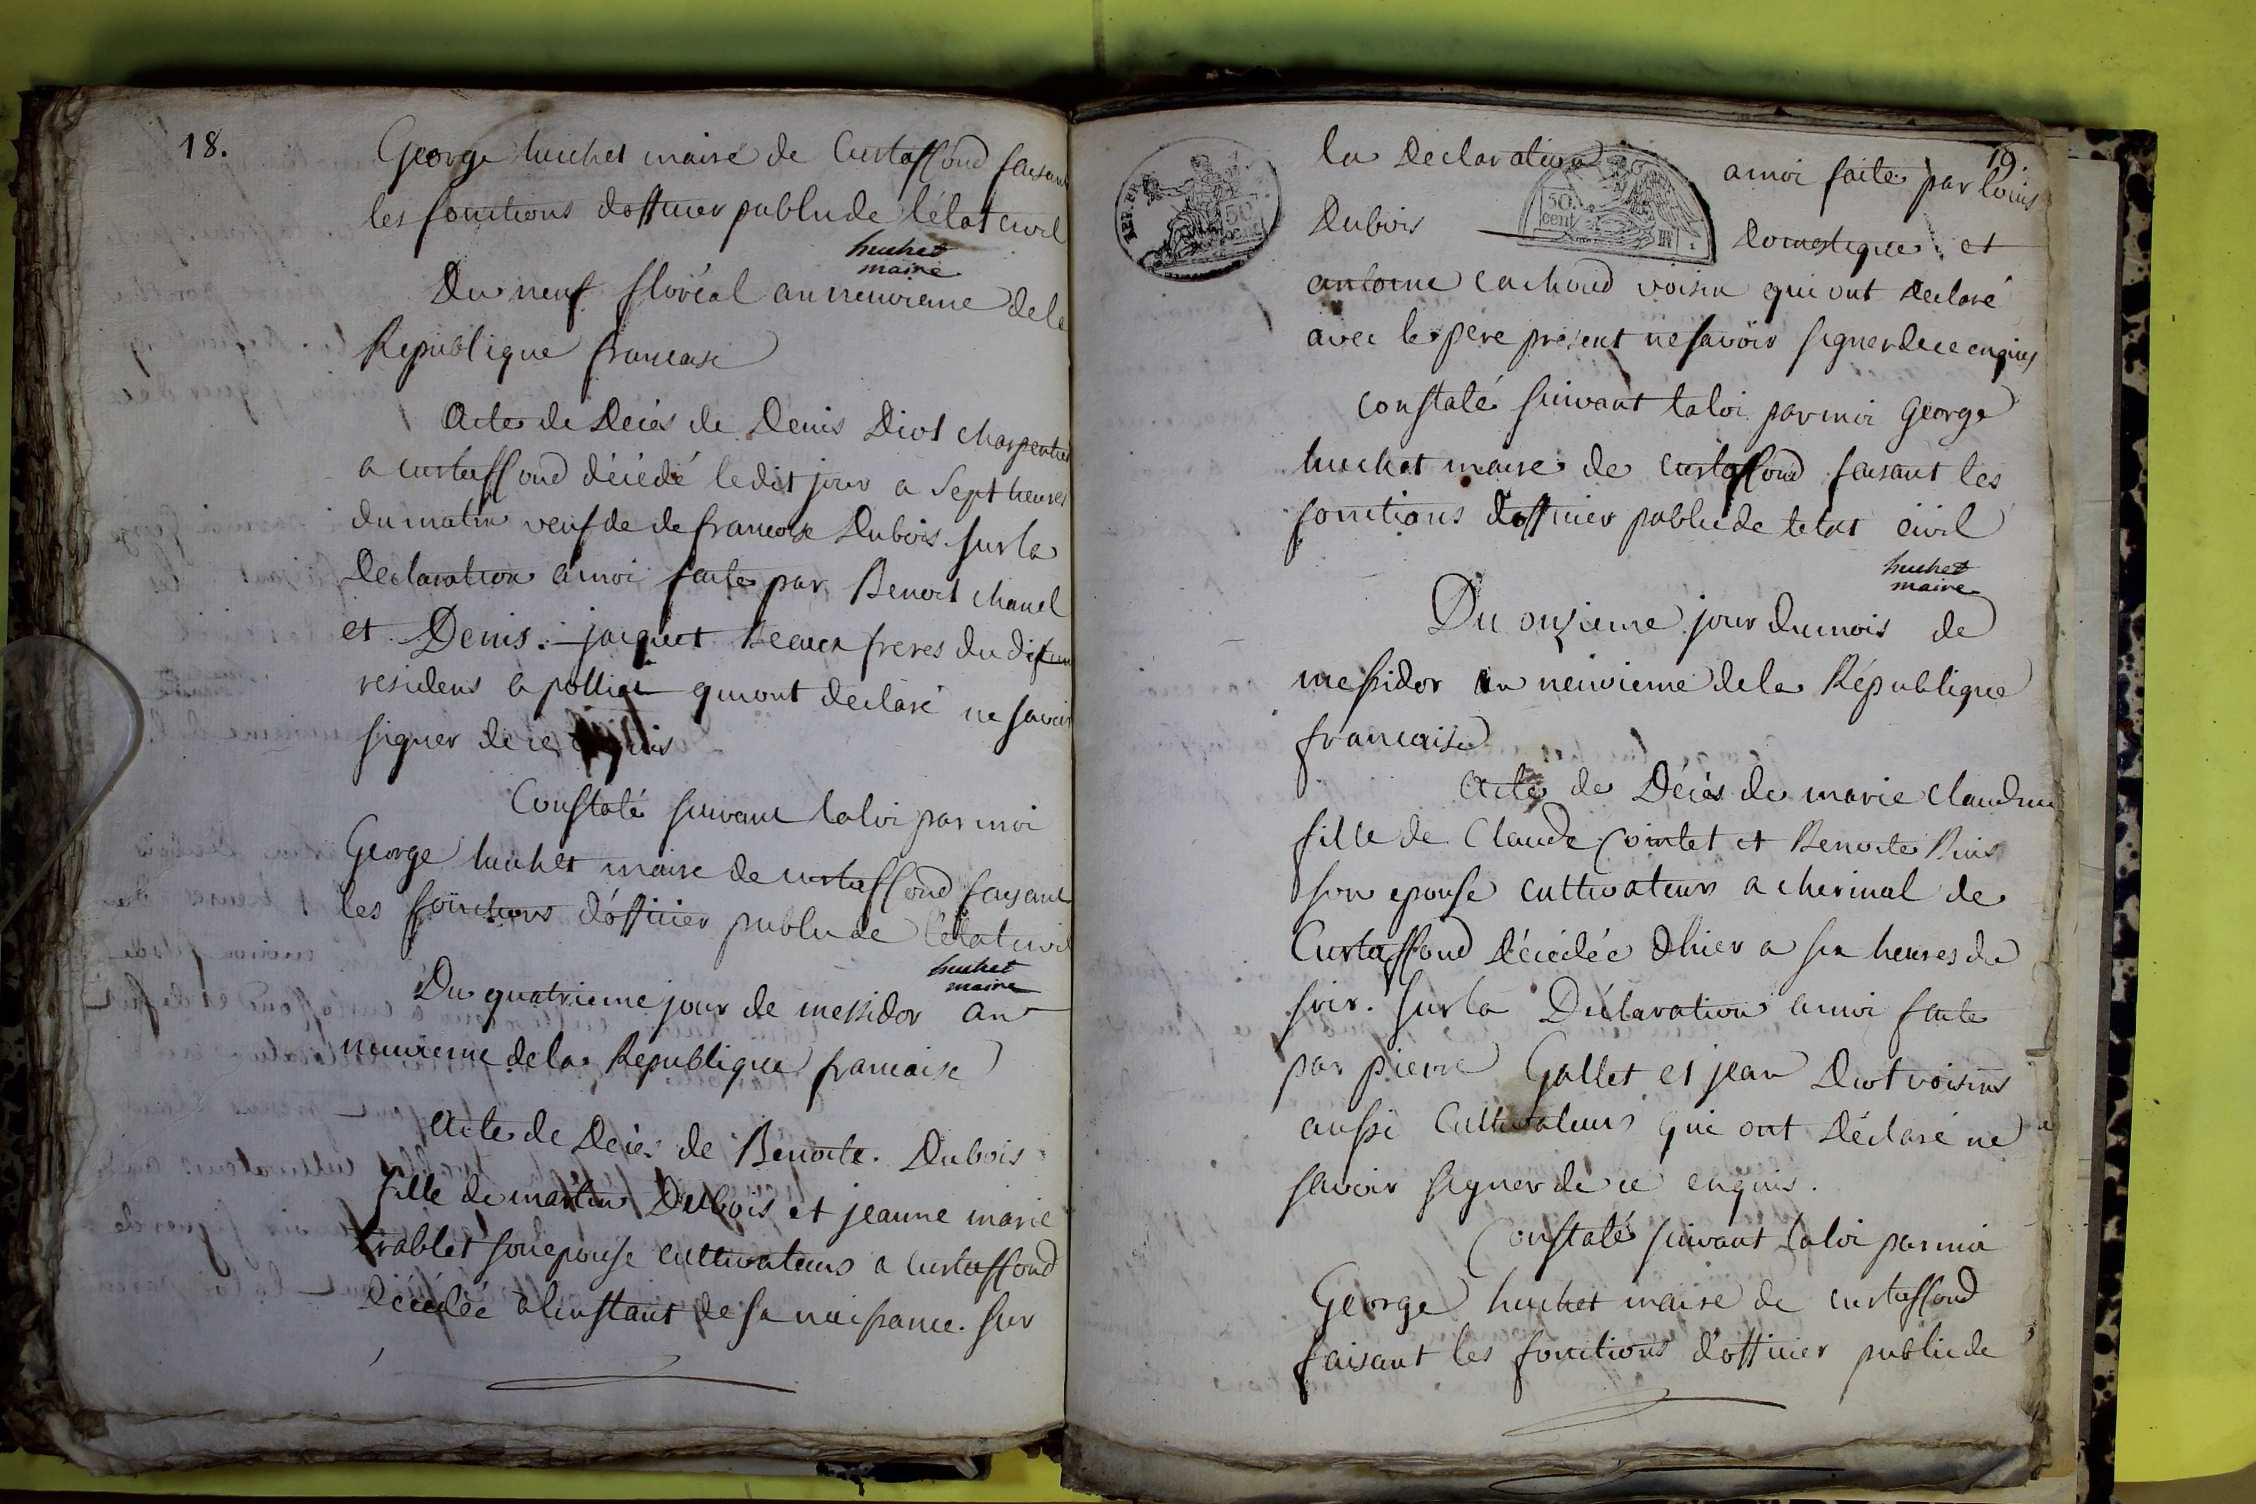 18.
George huchet maire de Curtaffond faisant
les fonctions dofficier publicde l'état civil
huchet
maire
Du neuf floréal an neuvieme dela
Republique francaise
Acte de Décès de Denis Diot charpentier
a curtaffond décédé ledit jour a Sept heures
du matin veuf de de francoise Dubois. sur la
Declaration a moi faite par Benoit chanel
et Denis jacquet beaux freres du defunt
residens a polliat qui ont déclaré ne savoir
signer de ce enquis
Constaté suivant la loi par moi
George huchet maire de curtaffond faisant
les fonctions d'officier publicde l'état civil
huchet
maire
Du quatrieme jour de messidor an
neuvieme dela Republique francaise
Acte de Décès de Benoite. Dubois
fille de martin Dubois et jeanne marie
trablet son epouse cultivateurs a curtaffond
Décédée a linstant de sa naissance. sur
19.
REP. FRA.
50
cent
la Declaration a moi faite par louis
50.
cent
Dubois Domestique et
antoine cachoud voisin qui ont declaré
avec le pere présent ne savoir signer de ce enquis
constaté suivant la loi par moi George
huchet maire de curtaffond faisant les
fonctions dofficier publicde letat civil
huchet
maire
Du onzieme jour du mois de
messidor an neuvieme dela République
francaise
Acte de Décès de marie claudine
fille de Claude Cointet et Benoite
son epouse cultivateurs a cherinal de
Curtaffond Décédée d'hier a six heures du
soir. sur la Déclaration a moi faite
par pierre Gallet et jean Diot voisins
aussi Cultivateurs qui ont Déclaré ne
savoir signer de ce enquis.
Constaté suivant la loi par moi
George huchet maire de curtaffond
faisant les fonctions d'officier publicde